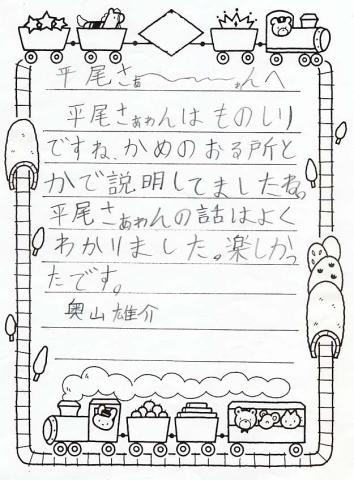 平尾さぁ〜〜〜〜ぁんへ
平尾さぁぁんはものしり
ですね、かめのおる所と
かで説明してましたね。
平尾さぁぁんの話はよく
わかりました。楽しかっ
たです。
奥山雄介